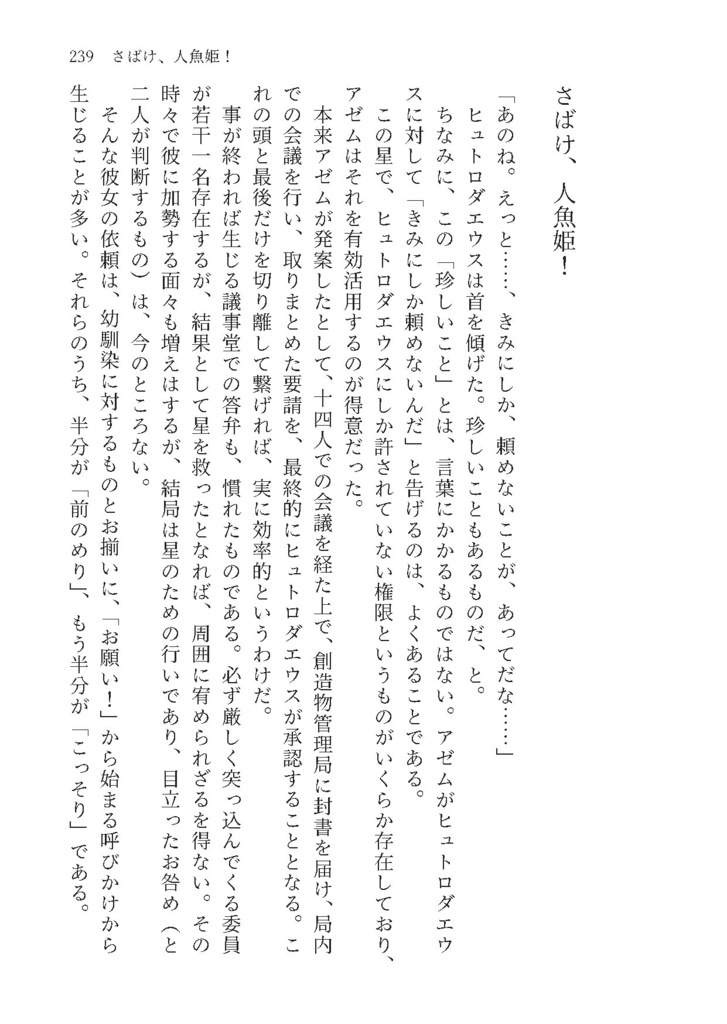 239　さばけ、人魚姫！
さばけ、人魚姫！
「あのね。えっと……、きみにしか、頼めないことが、あってだな……」
　ヒュトロダエウスは首を傾げた。珍しいこともあるものだ、と。
　ちなみに、この「珍しいこと」とは、言葉にかかるものではない。アゼムがヒュトロダエウ
スに対して「きみにしか頼めないんだ」と告げるのは、よくあることである。
　この星で、ヒュトロダエウスにしか許されていない権限というものがいくらか存在しており、
アゼムはそれを有効活用するのが得意だった。
　本来アゼムが発案したとして、十四人での会議を経た上で、創造物管理局に封書を届け、局内
での会議を行い、取りまとめた要請を、最終的にヒュトロダエウスが承認することとなる。こ
れの頭と最後だけを切り離して繋げれば、実に効率的というわけだ。
　事が終われば生じる議事堂での答弁も、慣れたものである。必ず厳しく突っ込んでくる委員
が若干一名存在するが、結果として星を救ったとなれば、周囲に宥められざるを得ない。その
時々で彼に加勢する面々も増えはするが、結局は星のための行いであり、目立ったお咎め（と
二人が判断するもの）は、今のところない。
　そんな彼女の依頼は、幼馴染に対するものとお揃いに、「お願い！」から始まる呼びかけから
生じることが多い。それらのうち、半分が「前のめり」、もう半分が「こっそり」である。